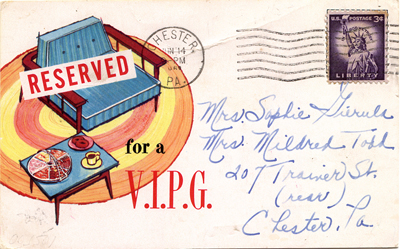 RESERVED
for a
V.I.P.G.
CHESTER
JUN 14
PM
PA.
U.S. POSTAGE 3¢
LIBERTY
Mrs. Sophie Sierula
Mrs. Mildred Todd
207 Trainer St.
(rear)
Chester, Pa